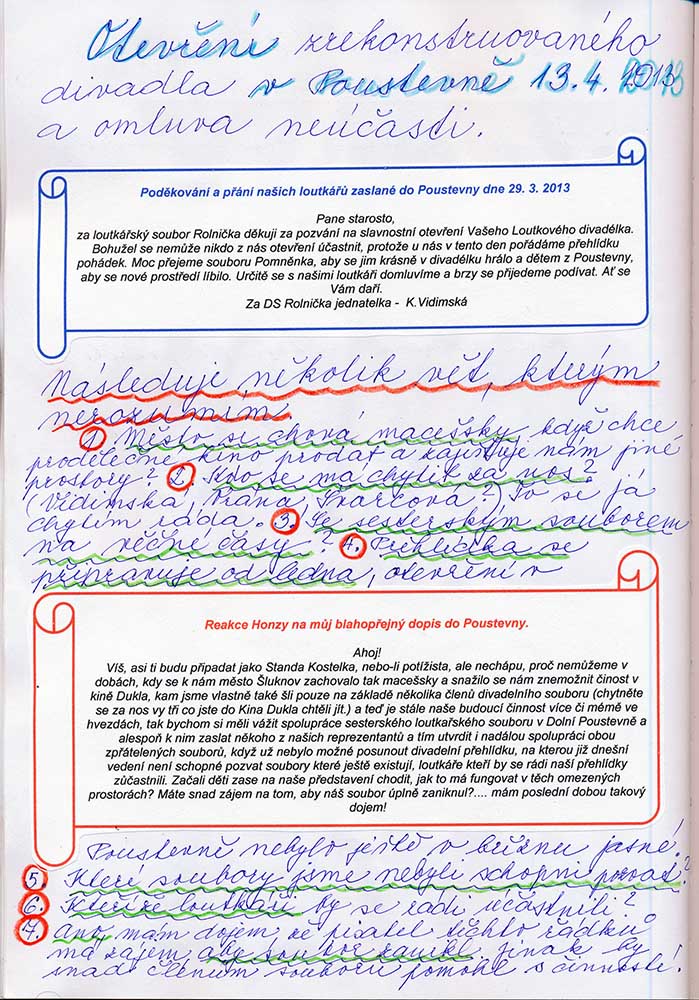 Otevření zrekonstruovaného
divadla v Poustevně 13.4.2013
a omluva neúčasti.
Poděkování a přání našich loutkářů zaslané do Poustevny dne 29. 3. 2013
Pane starosto,
za loutkářský soubor Rolnička děkuji za pozvání na slavnostní otevření Vašeho Loutkového divadélka.
Bohužel se nemůže nikdo z nás otevření účastnit, protože u nás v tento den pořádáme přehlídku
pohádek. Moc přejeme souboru Pomněnka, aby se jim krásně v divadélku hrálo a dětem z Poustevny,
aby se nové prostředí líbilo. Určitě se s našimi loutkáři domluvíme a brzy se přijedeme podívat. Ať se
Vám daří.
Za DS Rolnička jednatelka - K.Vidimská
Následuje několik vět, kterým
nerozumím.
1. Město si chová macešsky, když chce
prodělečné kino prodat a zajišťuje nám jiné
prostory? 2. Kdo se má chytit za nos?
(Vidimská, Švarcová?) To se já
chytím ráda. 3. Se sesterským souborem
na věčné časy? 4. Přehlídka se
připravuje od ledna, otevření v
Reakce Honzy na můj blahopřejný dopis do Poustevny.
Ahoj!
Víš, asi ti budu připadat jako Standa Kostelka, nebo-li potížista, ale nechápu, proč nemůžeme v
dobách, kdy se k nám město Šluknov zachovalo tak macešsky a snažilo se nám znemožnit činost v
kině Dukla, kam jsme vlastně také šli pouze na základě několika členů divadelního souboru (chytněte
se za nos vy tři co jste do Kina Dukla chtěli jít.) a teď je stále naše budoucí činnost více či mémě ve
hvezdách, tak bychom si měli vážit spolupráce sesterského loutkařského souboru v Dolní Poustevně a
alespoň k nim zaslat někoho z našich reprezentantů a tím utvrdit i nadálou spolupráci obou
zpřátelených souborů, když už nebylo možné posunout divadelní přehlídku, na kterou již dnešní
vedení není schopné pozvat soubory které ještě existují, loutkáře kteří by se rádi naší přehlídky
zůčastnili. Začali děti zase na naše představení chodit, jak to má fungovat v těch omezených
prostorách? Máte snad zájem na tom, aby náš soubor úplně zaniknul?.... mám poslední dobou takový
dojem!
Poustevně nebylo ještě v březnu jasné.
5. Které soubory jsme nebyli schopni pozvat?
6. Kteříže loutkáři by se rádi účastnili?
7. Ano, mám dojem, že pisatel těchto řádků
má zájem, aby soubor zanikl, jinak by
snad členům souboru pomohl s činností.